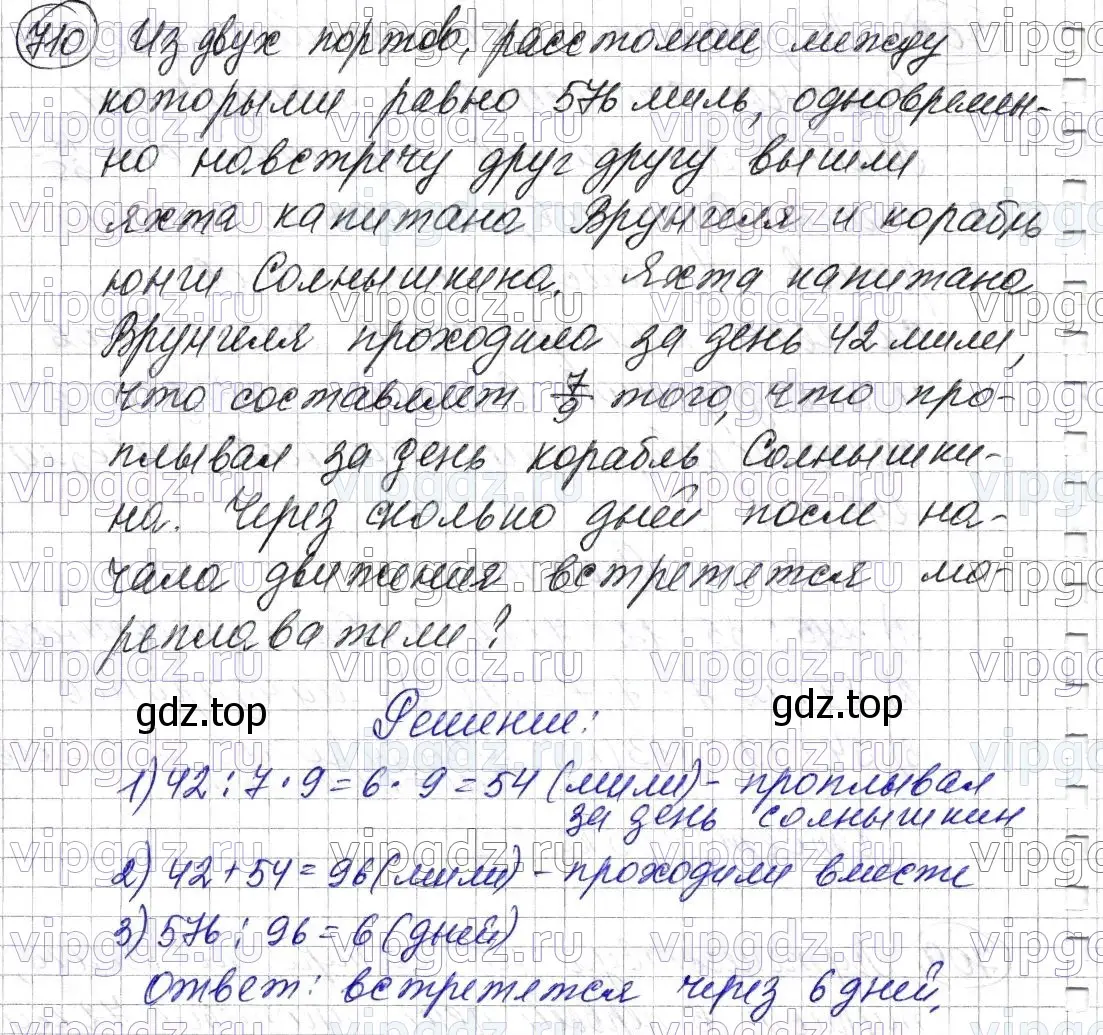 710 Из двух портов, расстояние между
которыми равно 576 миль, одновремен-
но навстречу друг другу вышли
яхта капитана Врунгеля и корабль
юнги Солнышкина. Яхта капитана
Врунгеля проходила за день 42 мили,
что составляет 7/9 того, что про-
плывал за день корабль Солнышки-
на. Через сколько дней после на-
чала движения встретятся мо-
реплаватели?
gdz.top Решение: gdz.top
1) 42 : 7 · 9 = 6 · 9 = 54 (мили) - проплывал
за день солнышкин
2) 42 + 54 = 96 (мили) - проходили вместе
3) 576 : 96 = 6 (дней)
Ответ: встретятся через 6 дней.
vipgdz.ru